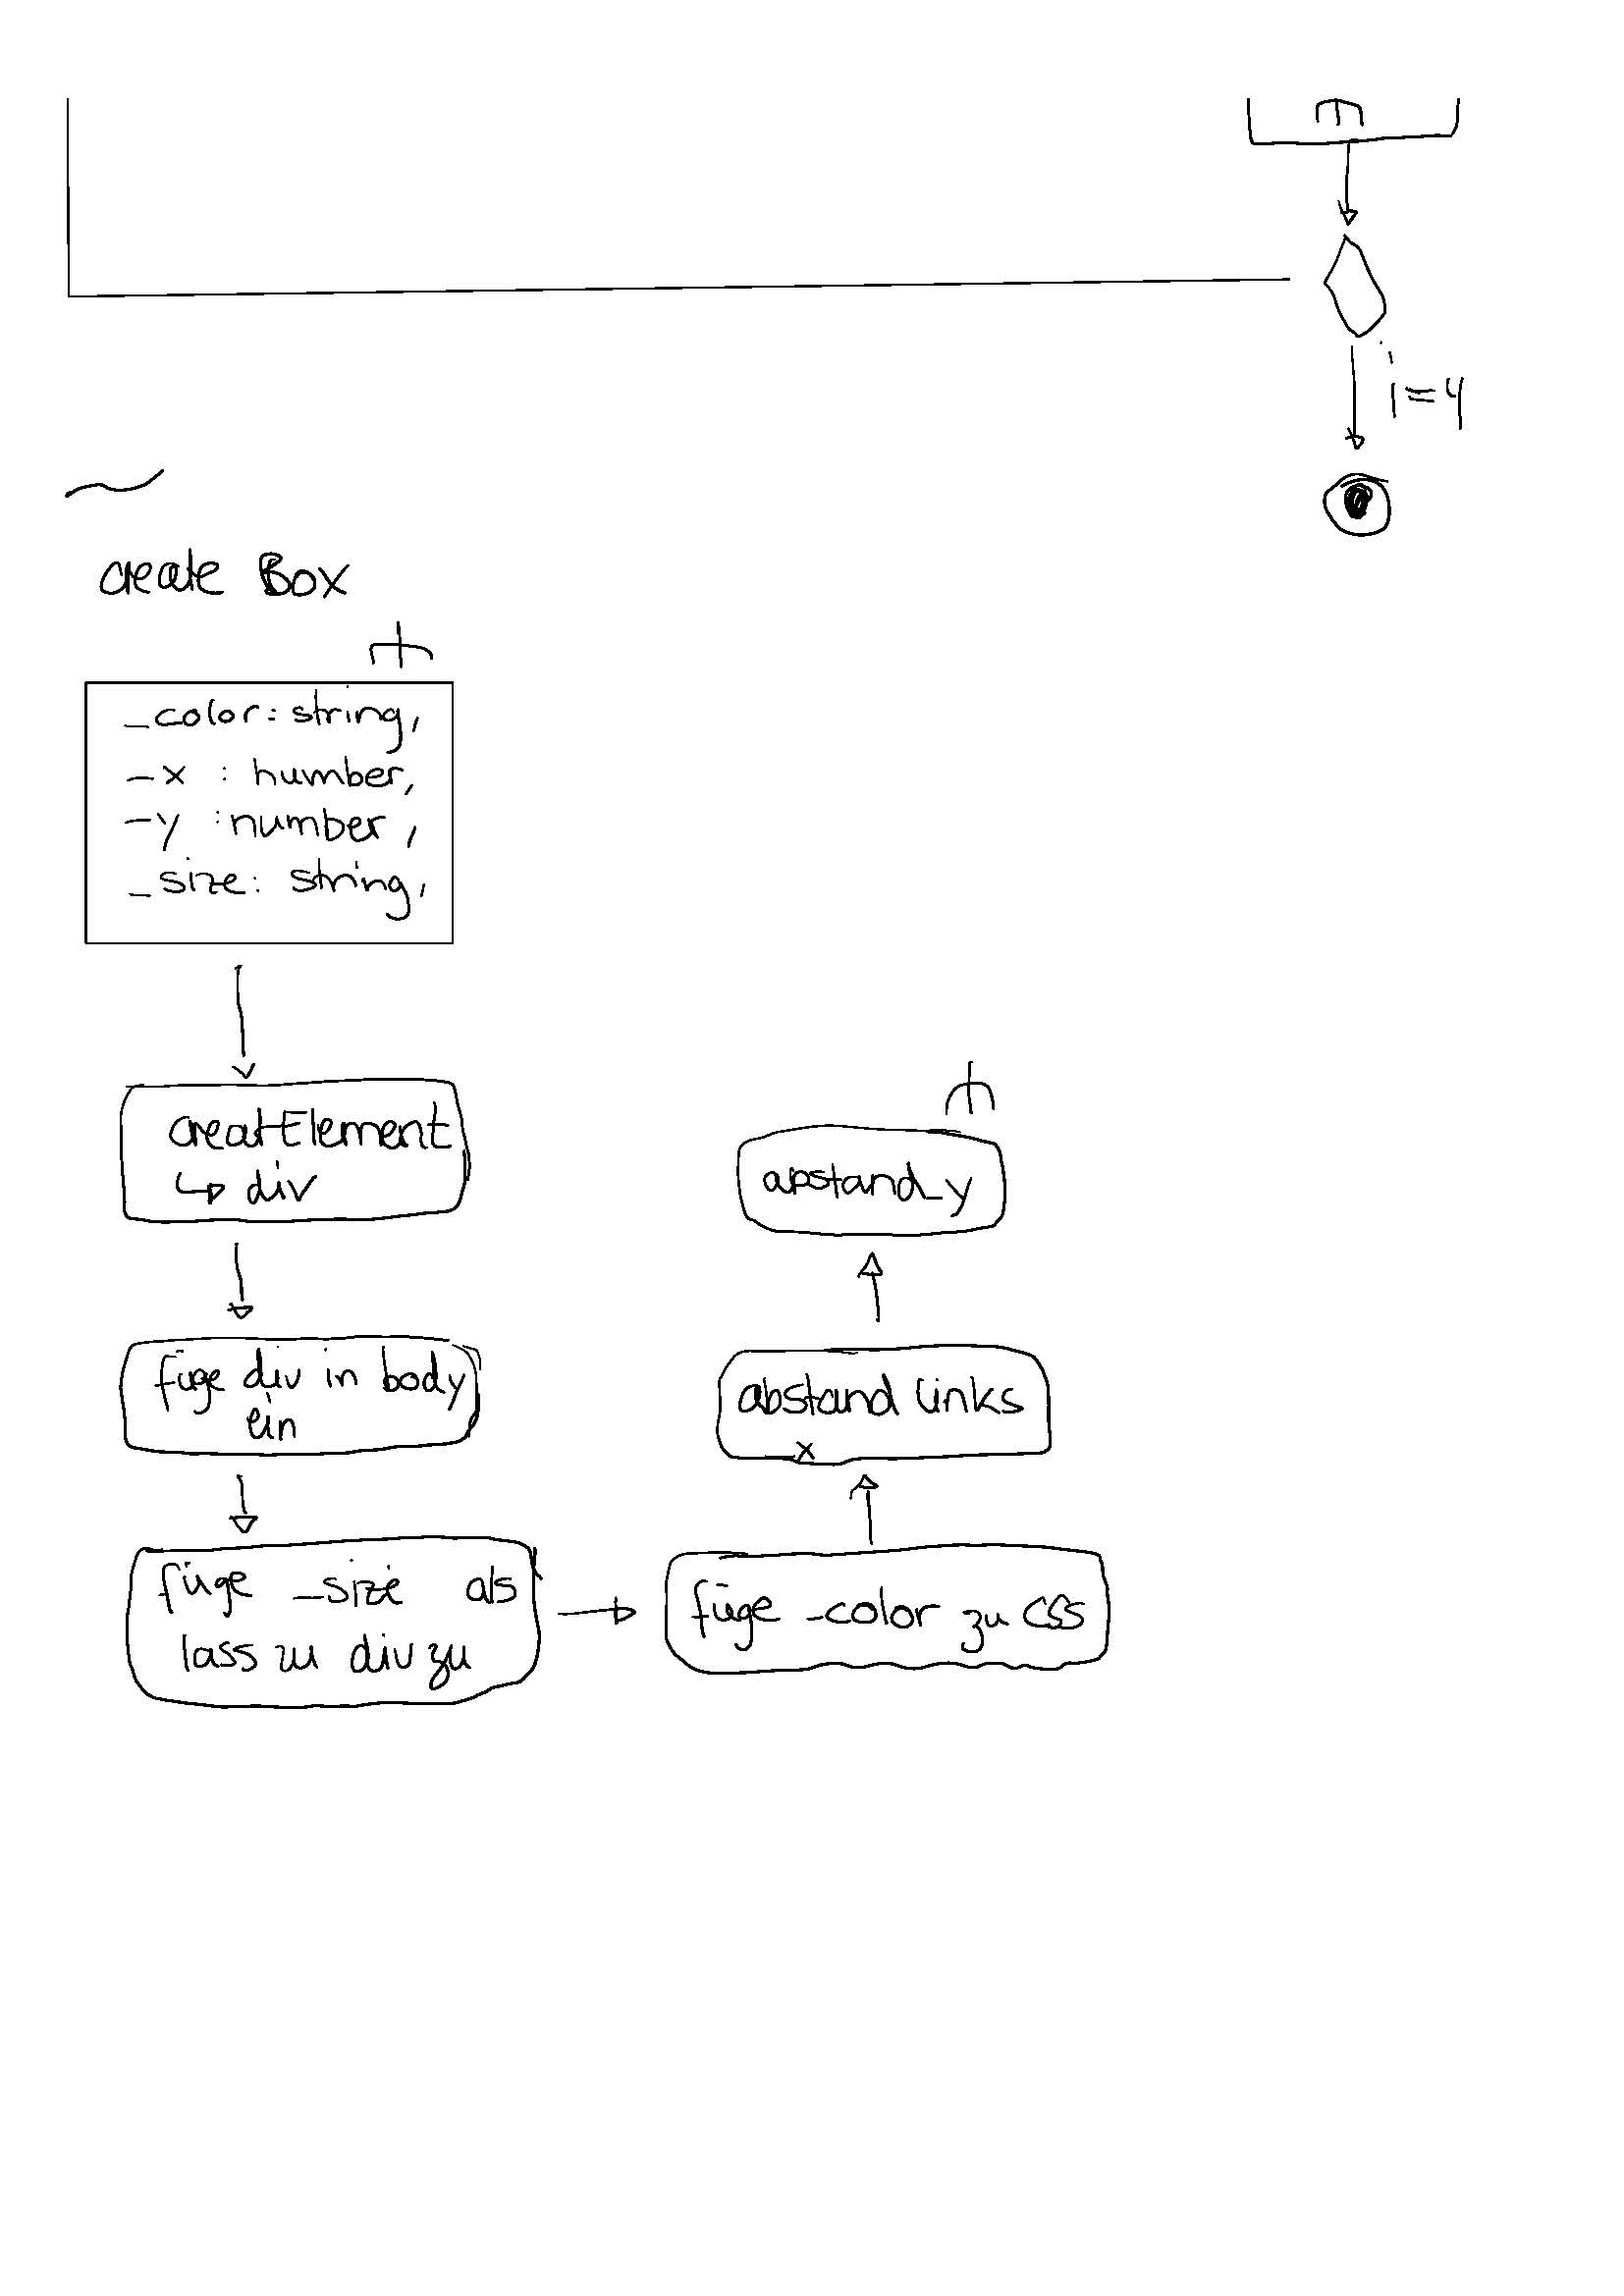 i=4
create Box
_color: string,
_x : number,
_y : number,
_size: string,
creatElement
↳ div
füge div in body
ein
füge _size als
lass zu div zu
füge _color zu CSS
abstand links
x
abstand_y